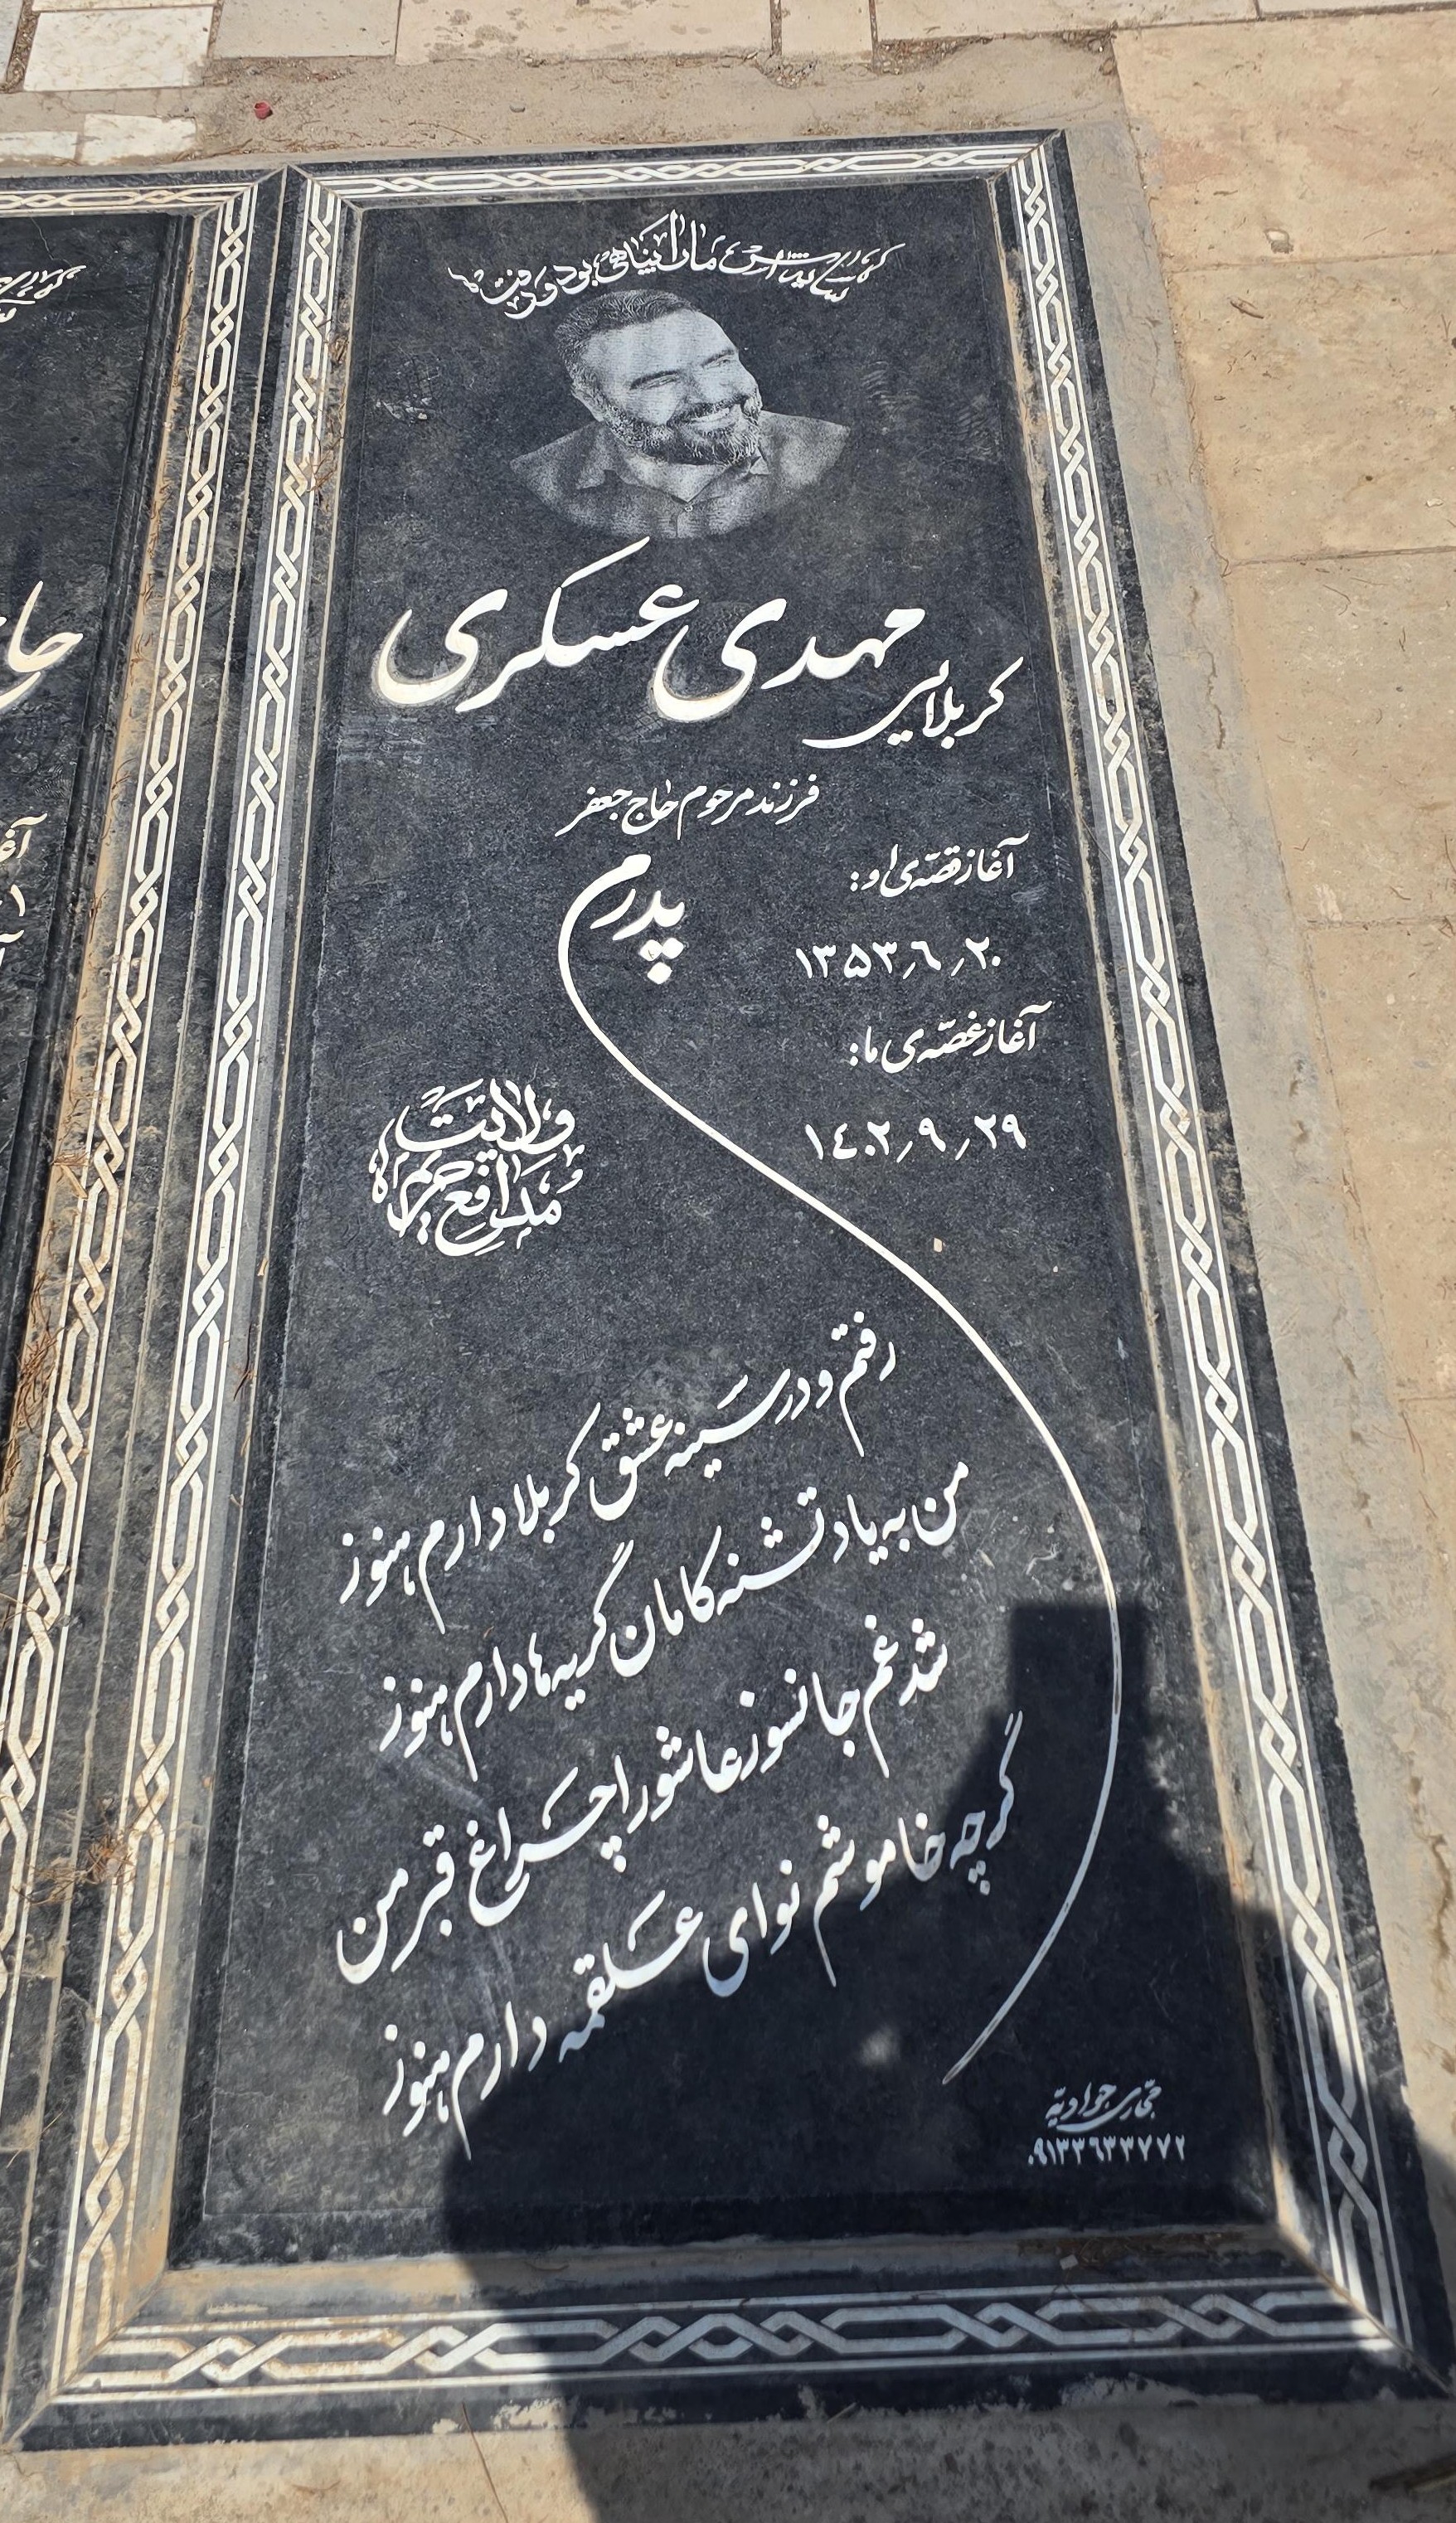 که سایه‌اش ما را پناهی بود و رفت
کربلایی مهدی عسکری
فرزند مرحوم حاج جعفر
پدرم
آغاز قصّه‌ی او:
۱۳۵۳٫۶٫۲۰
آغاز غصّه‌ی ما:
۱۴۰۲٫۹٫۲۹
مدافع حریم ولایت
رفتم و در سینه عشق کربلا دارم هنوز
من به یاد تشنه کامان گریه‌ها دارم هنوز
شد غم جانسوز عاشورا چراغ قبر من
گرچه خاموشم نوای علقمه دارم هنوز
حجاری جوادیه
۰۹۱۳۳۶۳۳۷۷۲
حاج